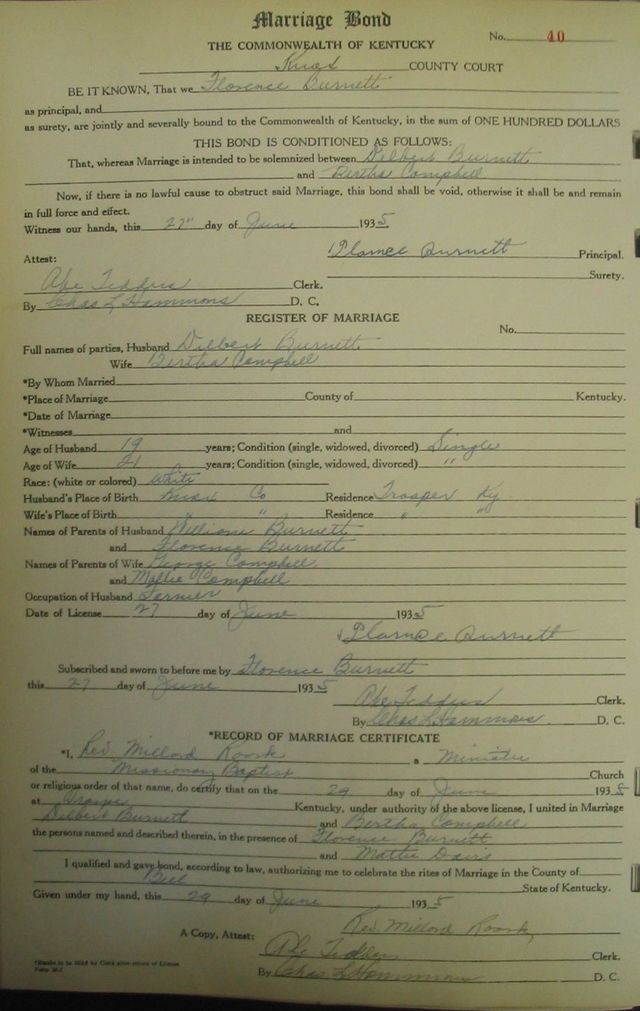 Marriage Bond
No. 40
THE COMMONWEALTH OF KENTUCKY
Knox COUNTY COURT
BE IT KNOWN, That we Florence Burnett
as principal, and
as surety, are jointly and severally bound to the Commonwealth of Kentucky, in the sum of ONE HUNDRED DOLLARS
THIS BOND IS CONDITIONED AS FOLLOWS:
That, whereas Marriage is intended to be solemnized between Dilbert Burnett
and Bertha Campbell
Now, if there is no lawful cause to obstruct said Marriage, this bond shall be void, otherwise it shall be and remain
in full force and effect.
Witness our hands, this 27" day of June 1935
Burnett Principal.
Attest: Surety.
Clerk.
By Chas L Hammons D. C.
REGISTER OF MARRIAGE
No.
Full names of parties, Husband Dilbert Burnett
Wife Bertha Campbell
*By Whom Married
*Place of Marriage County of Kentucky.
*Date of Marriage
*Witnesses and
Age of Husband 19 years; Condition (single, widowed, divorced) Single
Age of Wife 21 years; Condition (single, widowed, divorced) "
Race: (white or colored) White
Husband's Place of Birth Knox Co Residence Trosper Ky
Wife's Place of Birth " " Residence " "
Names of Parents of Husband William Burnett
and Florence Burnett
Names of Parents of Wife George Campbell
and Mollie Campbell
Occupation of Husband Farmer
Date of License 27 day of June 1935
Burnett
Subscribed and sworn to before me by Florence Burnett
this 27 day of June 1935
Clerk.
By Chas L Hammons D. C.
*RECORD OF MARRIAGE CERTIFICATE
*I, Rev. Millard Roark a Minister
of the Missionary Baptist Church
or religious order of that name, do certify that on the 29 day of June 1935
at Kentucky, under authority of the above license, I united in Marriage
Dilbert Burnett and Bertha Campbell
the persons named and described therein, in the presence of Florence Burnett
and Mattie Davis
I qualified and gave bond, according to law, authorizing me to celebrate the rites of Marriage in the County of
Bell State of Kentucky.
Given under my hand, this 29 day of June 1935
Rev. Millard Roark
A Copy, Attest: Clerk.
By Chas L Hammons D. C.